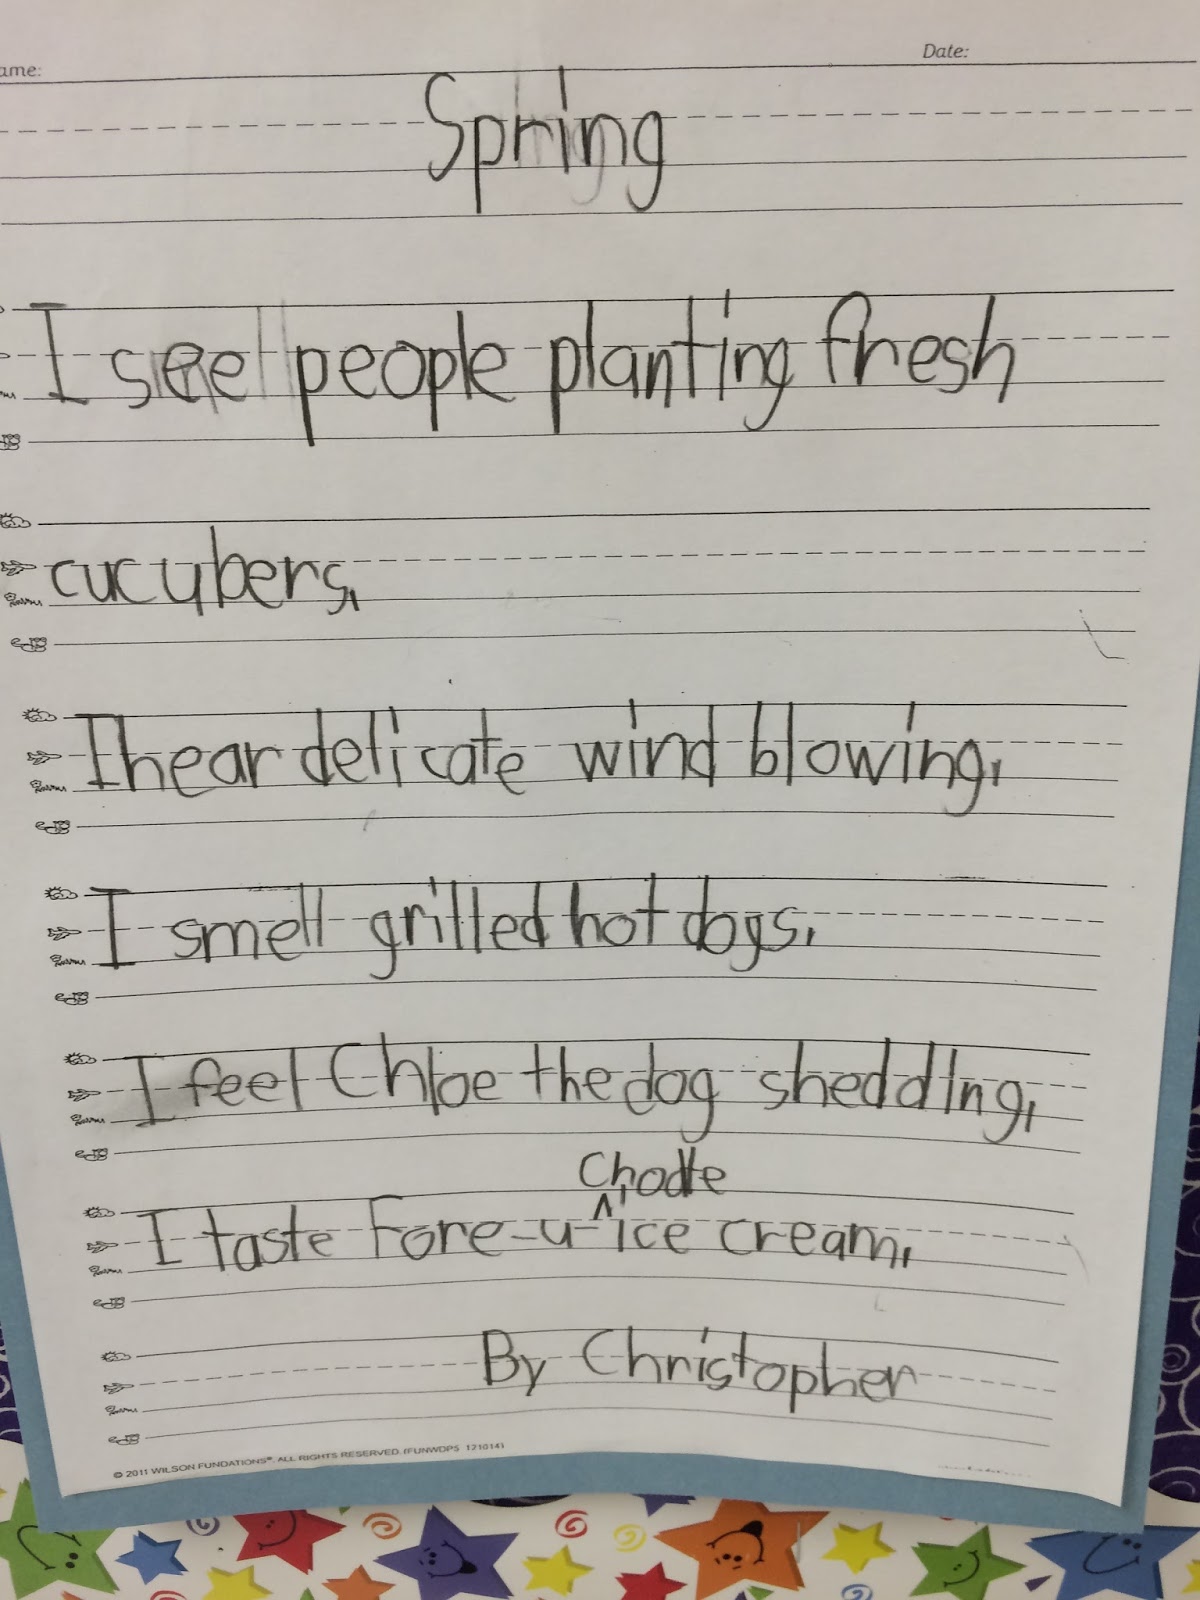 ame:
Date:
Spring
I see people planting fresh
cucubers,
I hear delicate wind blowing,
I smell grilled hot dogs,
I feel Chloe the dog shedding,
Chodle
I taste Fore-u-ice cream,
By Christopher
© 2011 WILSON FUNDATIONS®. ALL RIGHTS RESERVED. (FUNWDP5 121014)